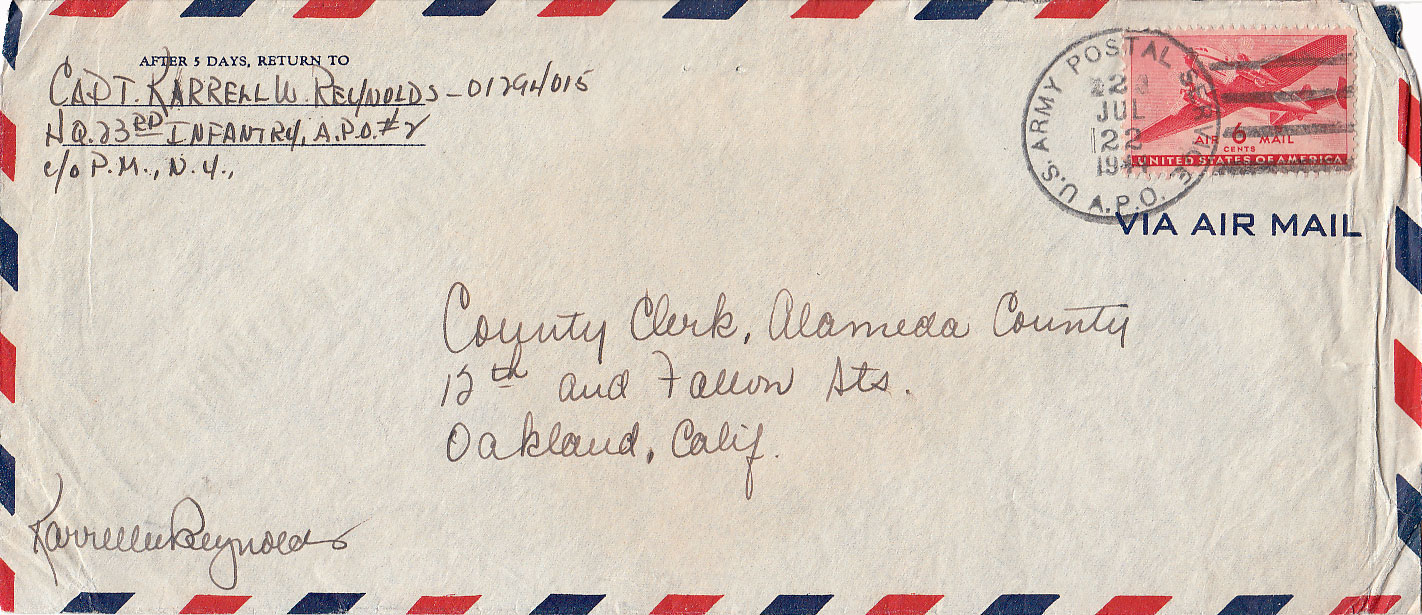 AFTER 5 DAYS, RETURN TO
CAPT. KARRELL W REYNOLDS - 01294015
HQ. 23RD INFANTRY, A.P.O. #2
c/o P.M., N.Y.,
U.S. ARMY POSTAL SERVICE
A.P.O.
JUL
22
AIR 6 MAIL
CENTS
UNITED STATES OF AMERICA
VIA AIR MAIL
County Clerk, Alameda County
12th and Fallon Sts.
Oakland, Calif.
Karrell W Reynolds